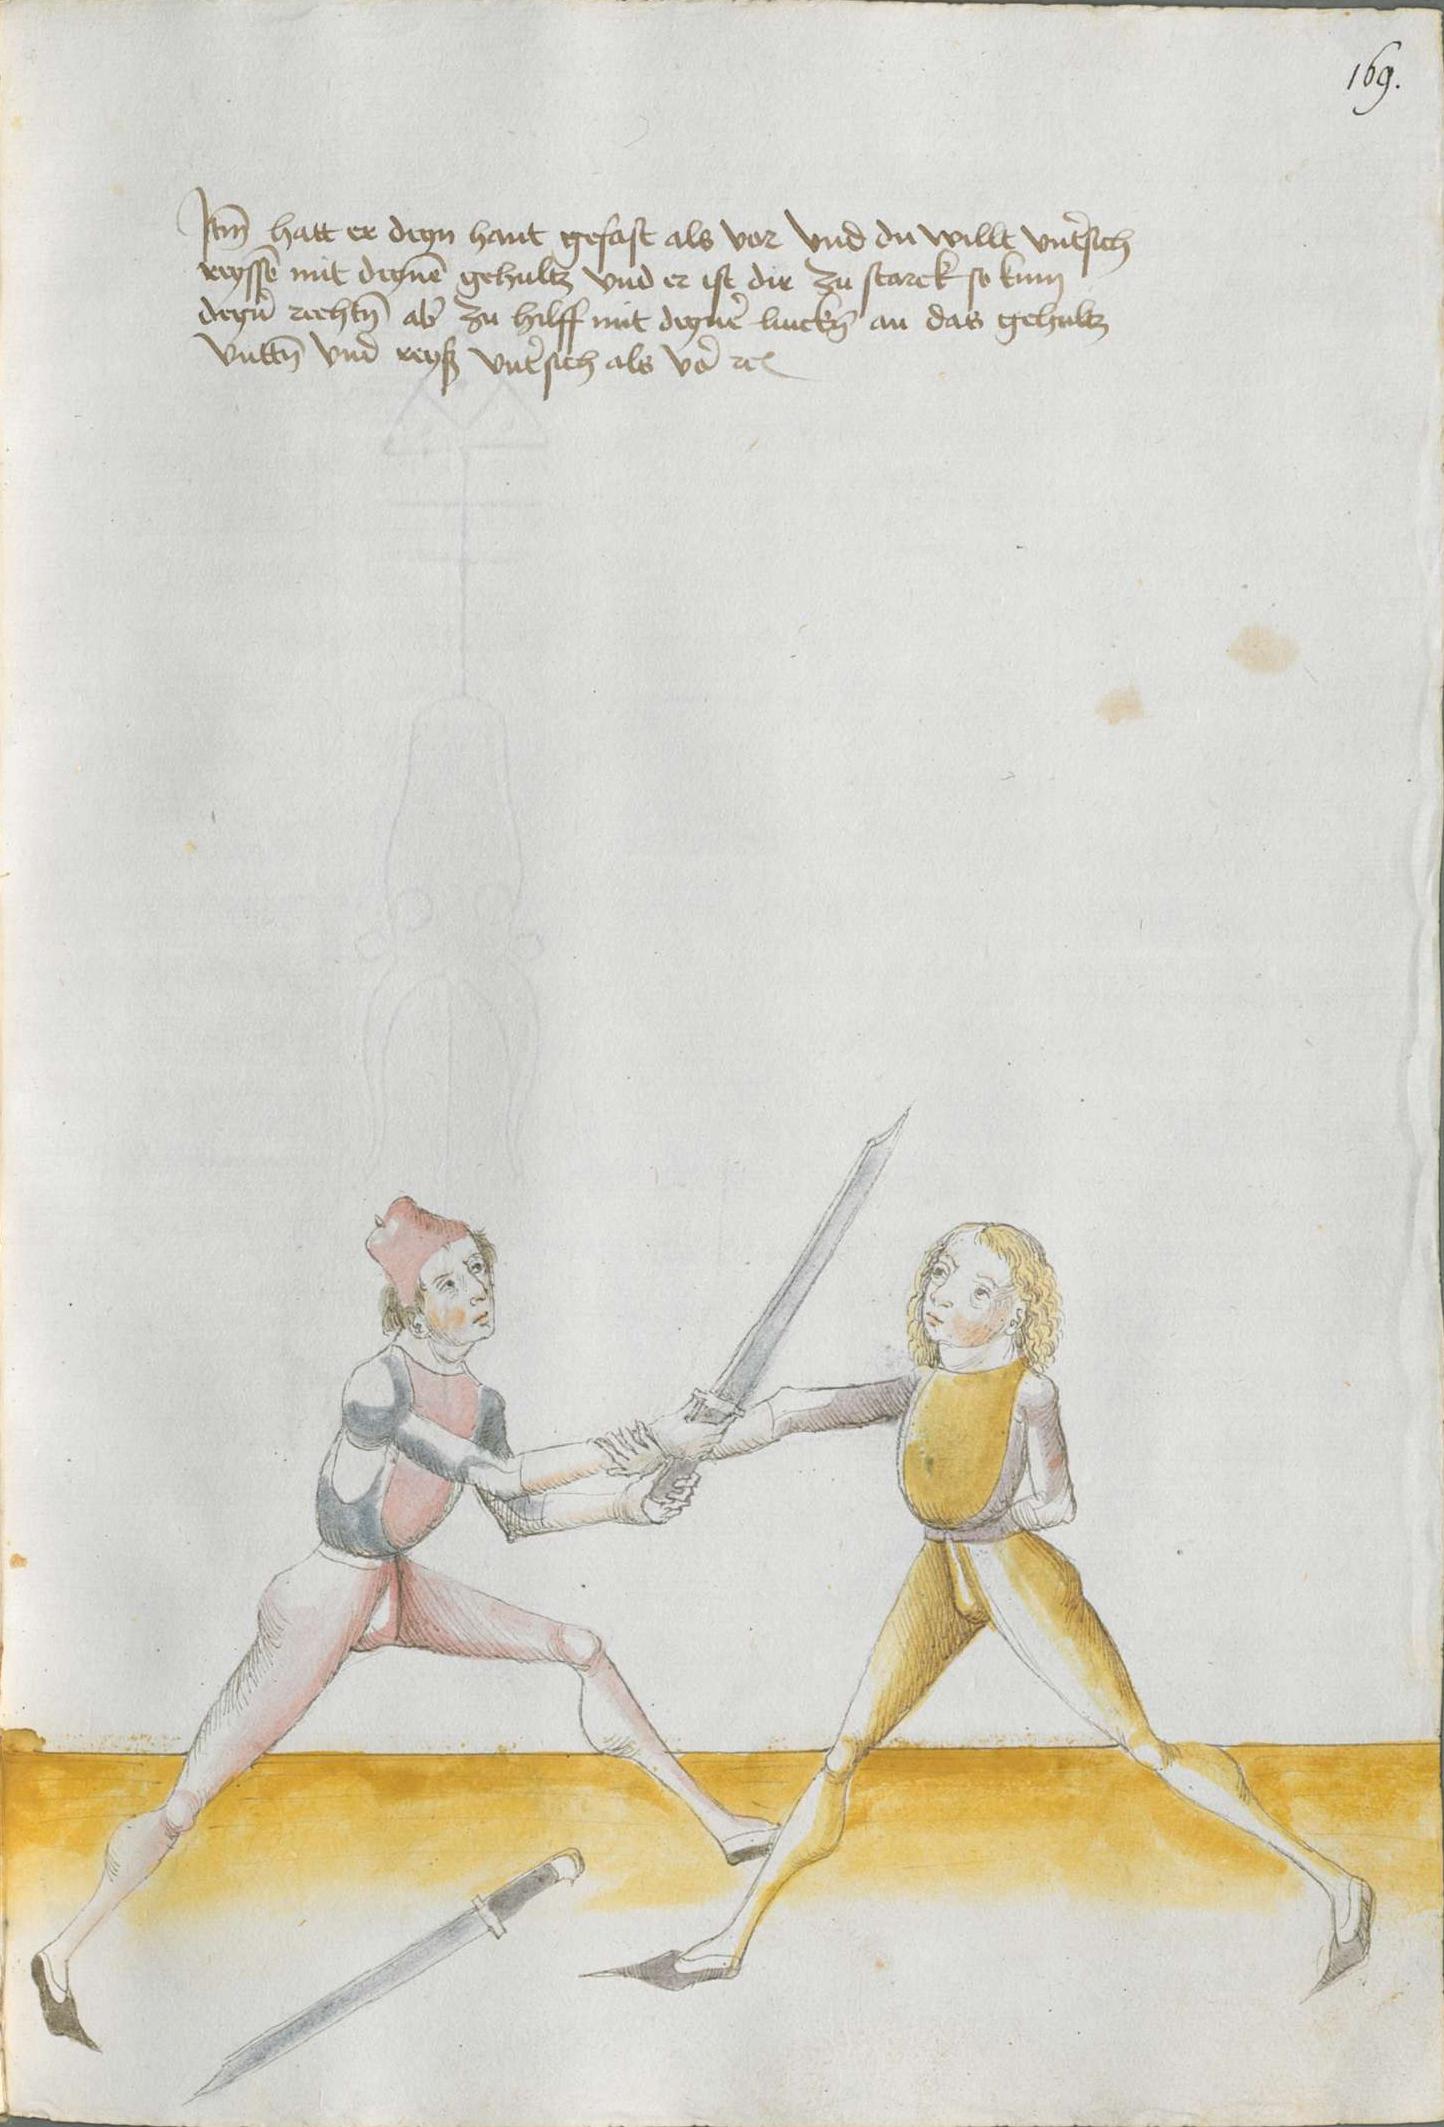 169.
Itm̅ hatt er deyn hant gefast als vor vnd du willt vnt̕sich
reyssē mit deynē gehultz vnd er ist dir zu starck so kum
deyn̕ rechtn̄ ab̕ zu hilff mit deyne̕ linckn̄ an das gehultz
vnttn̄ vnd reyß vnt̕sich als vo̕ rc